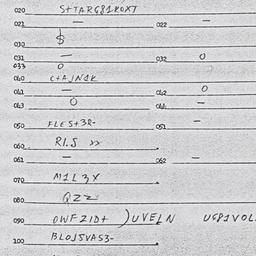 020 S+TARG81KOXT
021 — 022 —
030 $
031 — 032 0
033 0
040 C+AJN1K
041 — 042 0
043 0 044 —
050 FLES+3R- 051 —
060 RI.S xx
061 — 062 —
070 M1L3X
080 QZz
090 OWFZID+ )UVELN UGP1VOL
100 BLOJSVAS3-